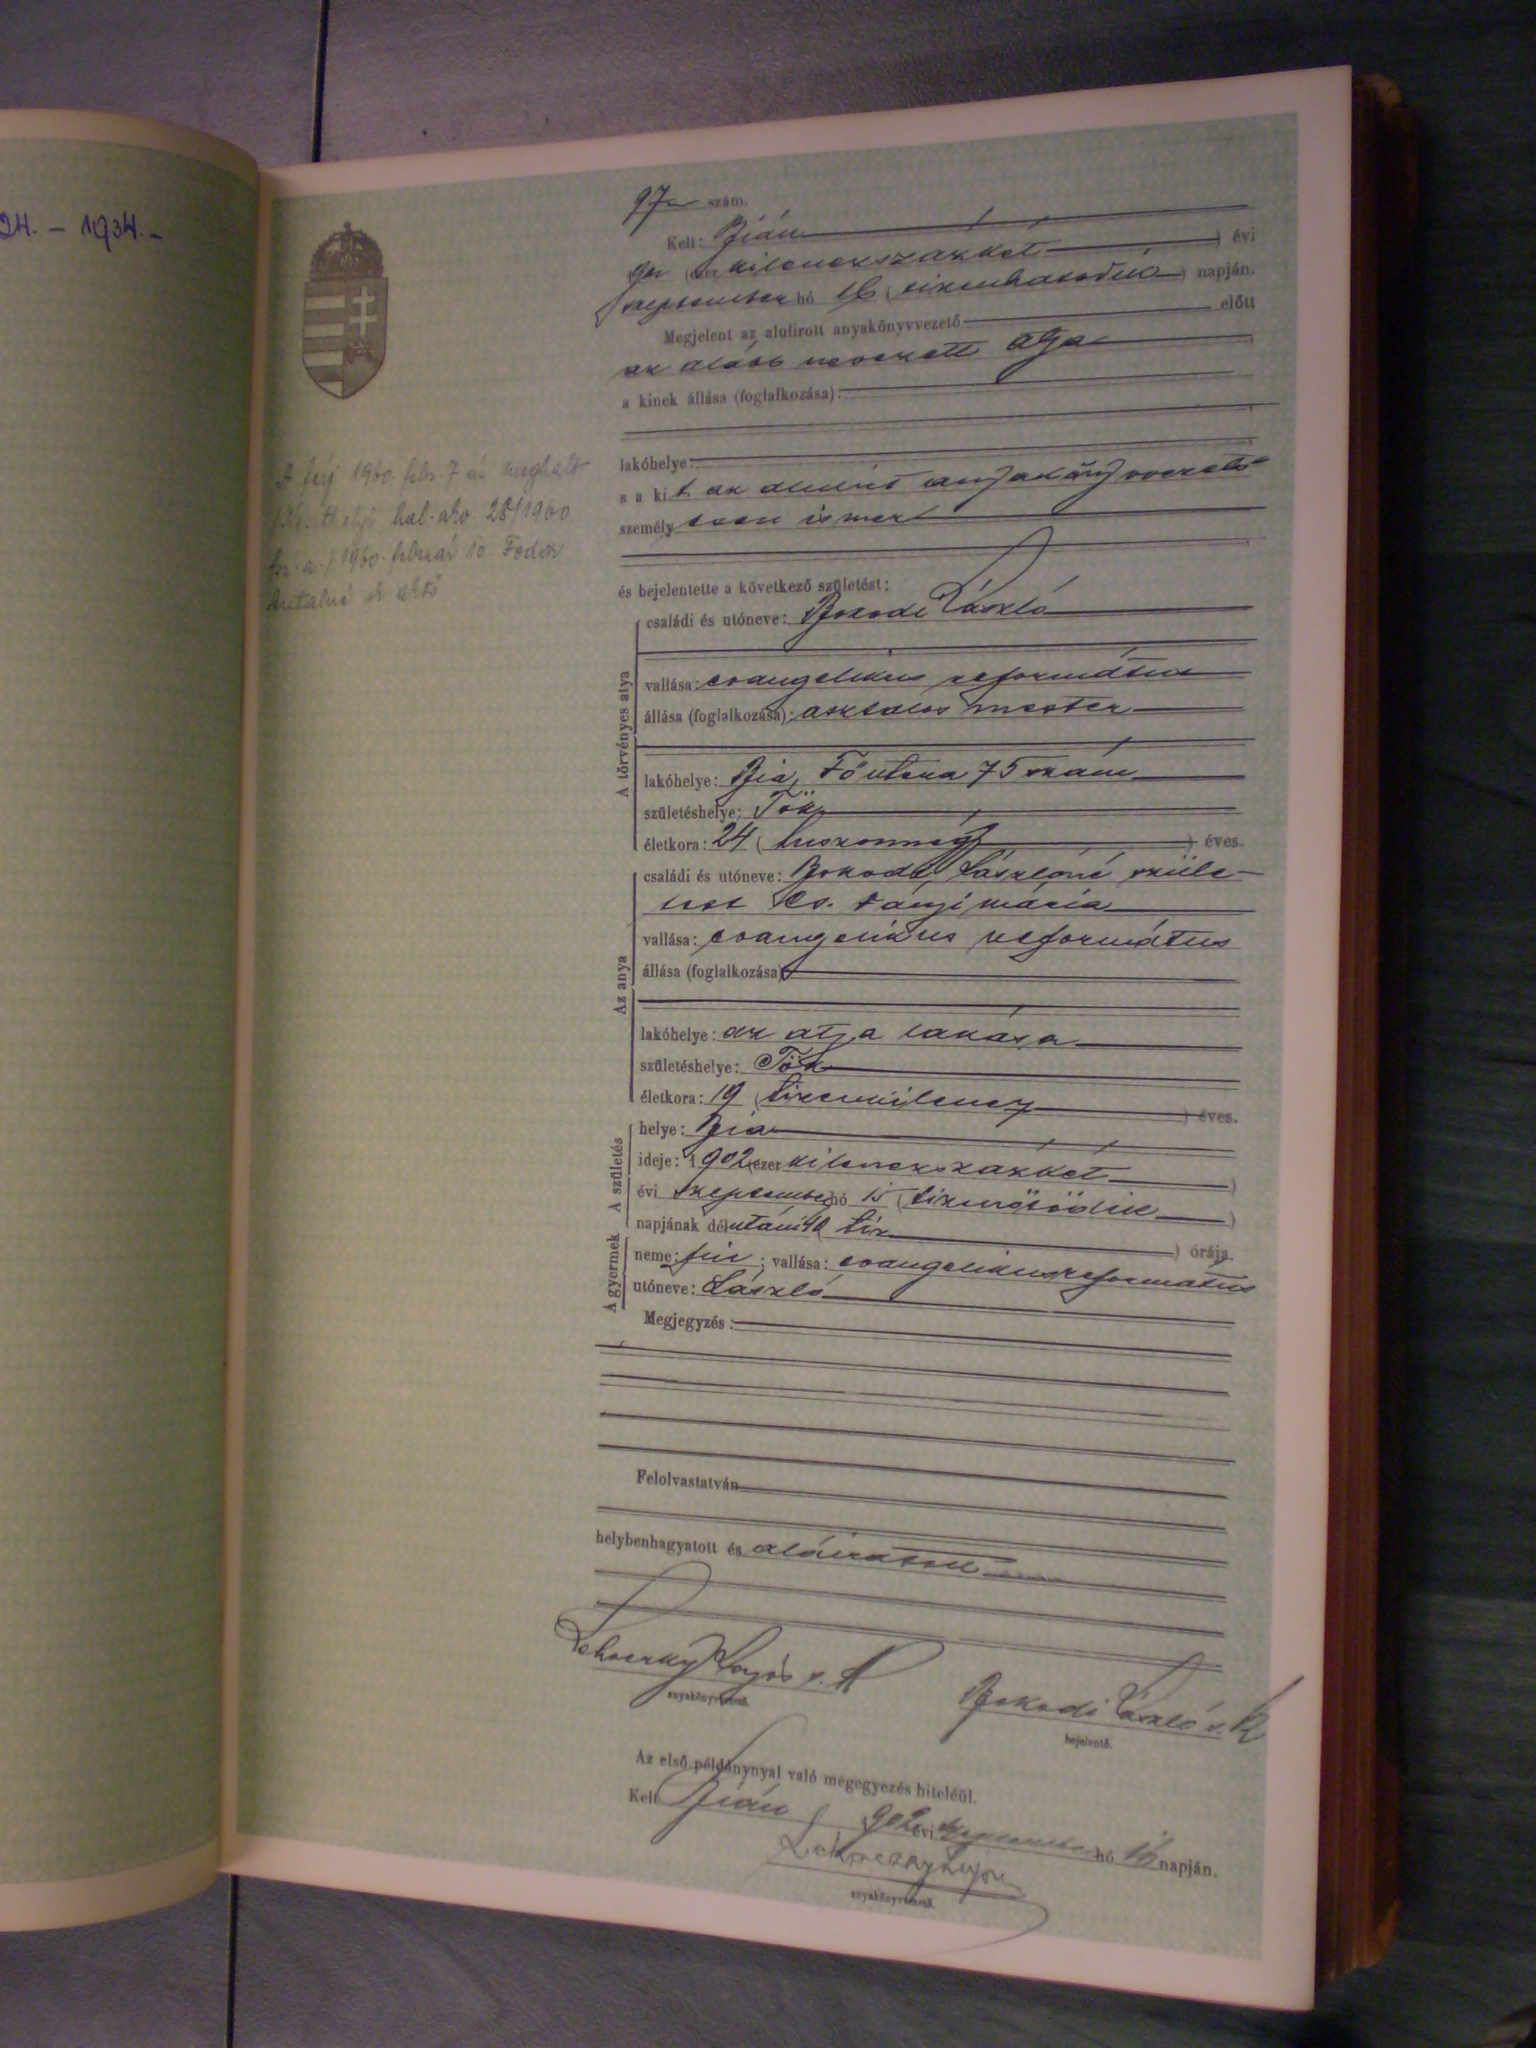 24. - 1934. -
97 szám.
Kelt: Bián
902 (ezer kilenczszázkét ) évi
szeptember hó 16 (tizenhatodik ) napján.
Megjelent az alulirott anyakönyvvezető előtt
az alább nevezett atya
a kinek állása (foglalkozása):
lakóhelye:
s a kit az alulirt anyakönyvvezető
személyesen ismer
és bejelentette a következő születést:
A törvényes atya
családi és utóneve: Bokodi László
vallása: evangelikus református
állása (foglalkozása): asztalos mester
lakóhelye: Bia, Fő utcza 75 szám
születéshelye: Tök
életkora: 24 (huszonnégy ) éves.
Az anya
családi és utóneve: Bokodi Lászlóné szüle-
tett Cs. Fányi Mária
vallása: evangelikus református
állása (foglalkozása)
lakóhelye: az atya lakása
születéshelye: Tök
életkora: 19 (tizenkilencz ) éves.
A születés
helye: Bia
ideje: 1902 (ezer kilenczszázkét )
évi szeptember hó 15 (tizenötödik )
napjának délutáni 10 (tiz ) órája.
A gyermek
neme: fiu ; vallása: evangelikus református
utóneve: László
Megjegyzés:
Felolvastatván
helybenhagyatott és aláiratott
Lehoczky Lajos s. k
anyakönyvvezető.
Bokodi László s. k
bejelentő.
Az első példánynyal való megegyezés hiteléül.
Kelt Bián, 902 évi szeptember hó 16 napján.
Lehoczky Lajos
anyakönyvvezető.
A férj 1960. febr. 7 én meghalt
hal. akv. 28/1960
1960. február 10. Fodor
Antalné